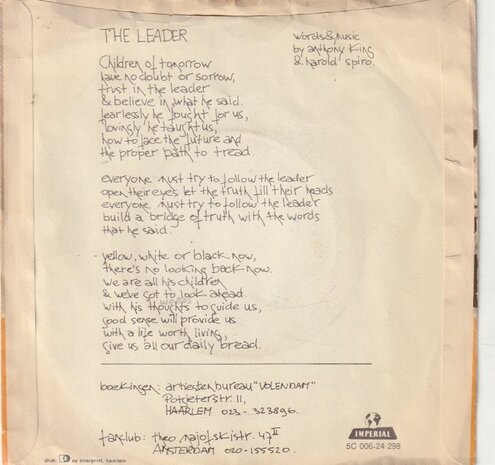 THE LEADER
words & music
by anthony King
& harold spiro
Children of tomorrow
have no doubt or sorrow,
trust in the leader
& believe in what he said.
fearlessly he fought for us,
lovingly he taught us,
how to face the future and
the proper path to tread.
everyone must try to follow the leader
open their eyes let the truth fill their heads
everyone must try to follow the leader
build a bridge of truth with the words
that he said.
yellow, white or black now,
there's no looking back now.
we are all his children
& we've got to look ahead.
with his thoughts to guide us,
good sense will provide us
with a life worth living,
give us all our daily bread.
boekingen: artiestenbureau "VOLENDAM"
Potgieterstr 11,
HAARLEM 023-323896.
fanclub: theo najolskistr. 47 II
AMSTERDAM 020-155520.
IMPERIAL
5C 006-24 296
druk: nv interprint, haarlem